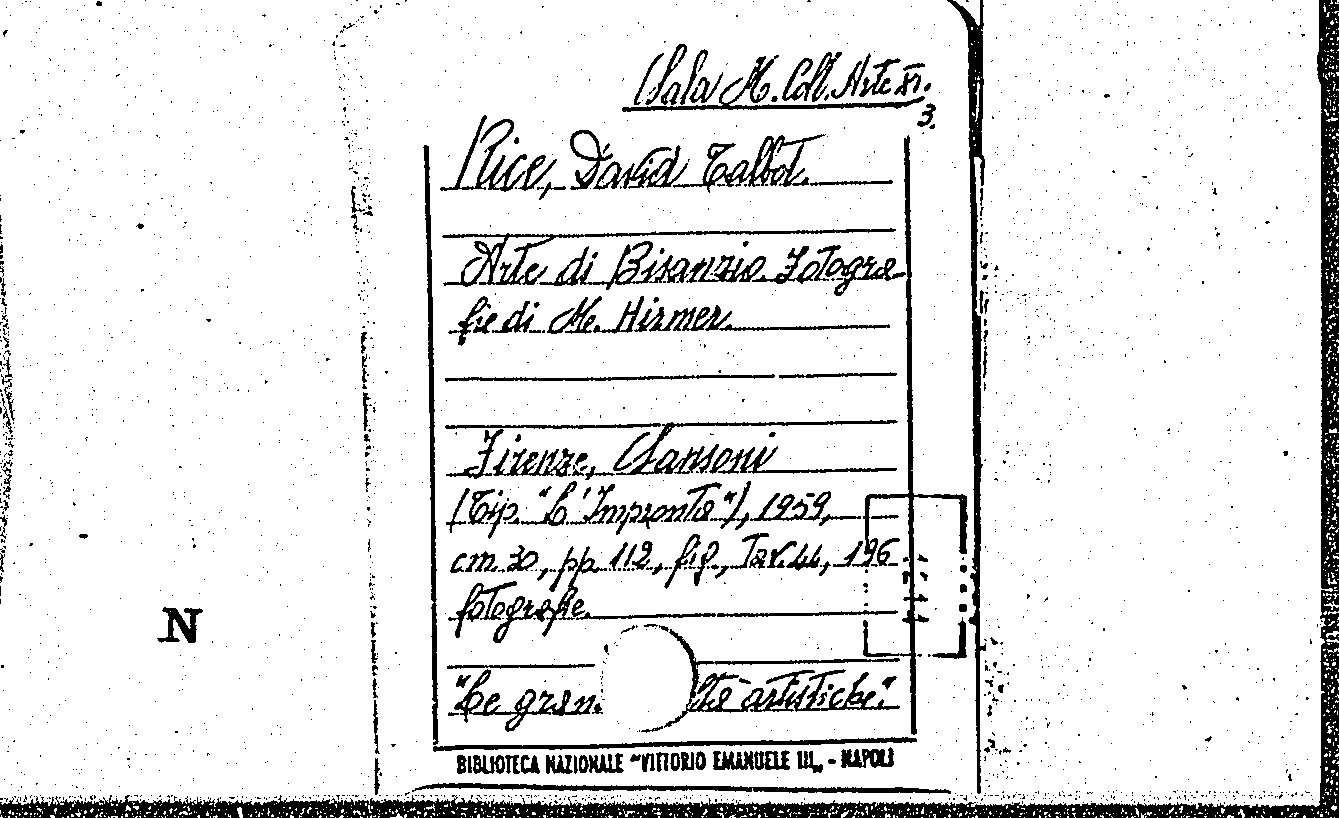 Sala M. Coll. Arte XI.
3.
Rice, David Talbot.
Arte di Bisanzio. Fotogra-
fie di M. Hirmer.
Firenze, Sansoni
(Tip. "L'Impronta"), 1959,
cm 30, pp. 112, fig., Tav. 44, 196
fotografie.
N
"Le gran. artistiche".
BIBLIOTECA NAZIONALE "VITTORIO EMANUELE III„ - NAPOLI